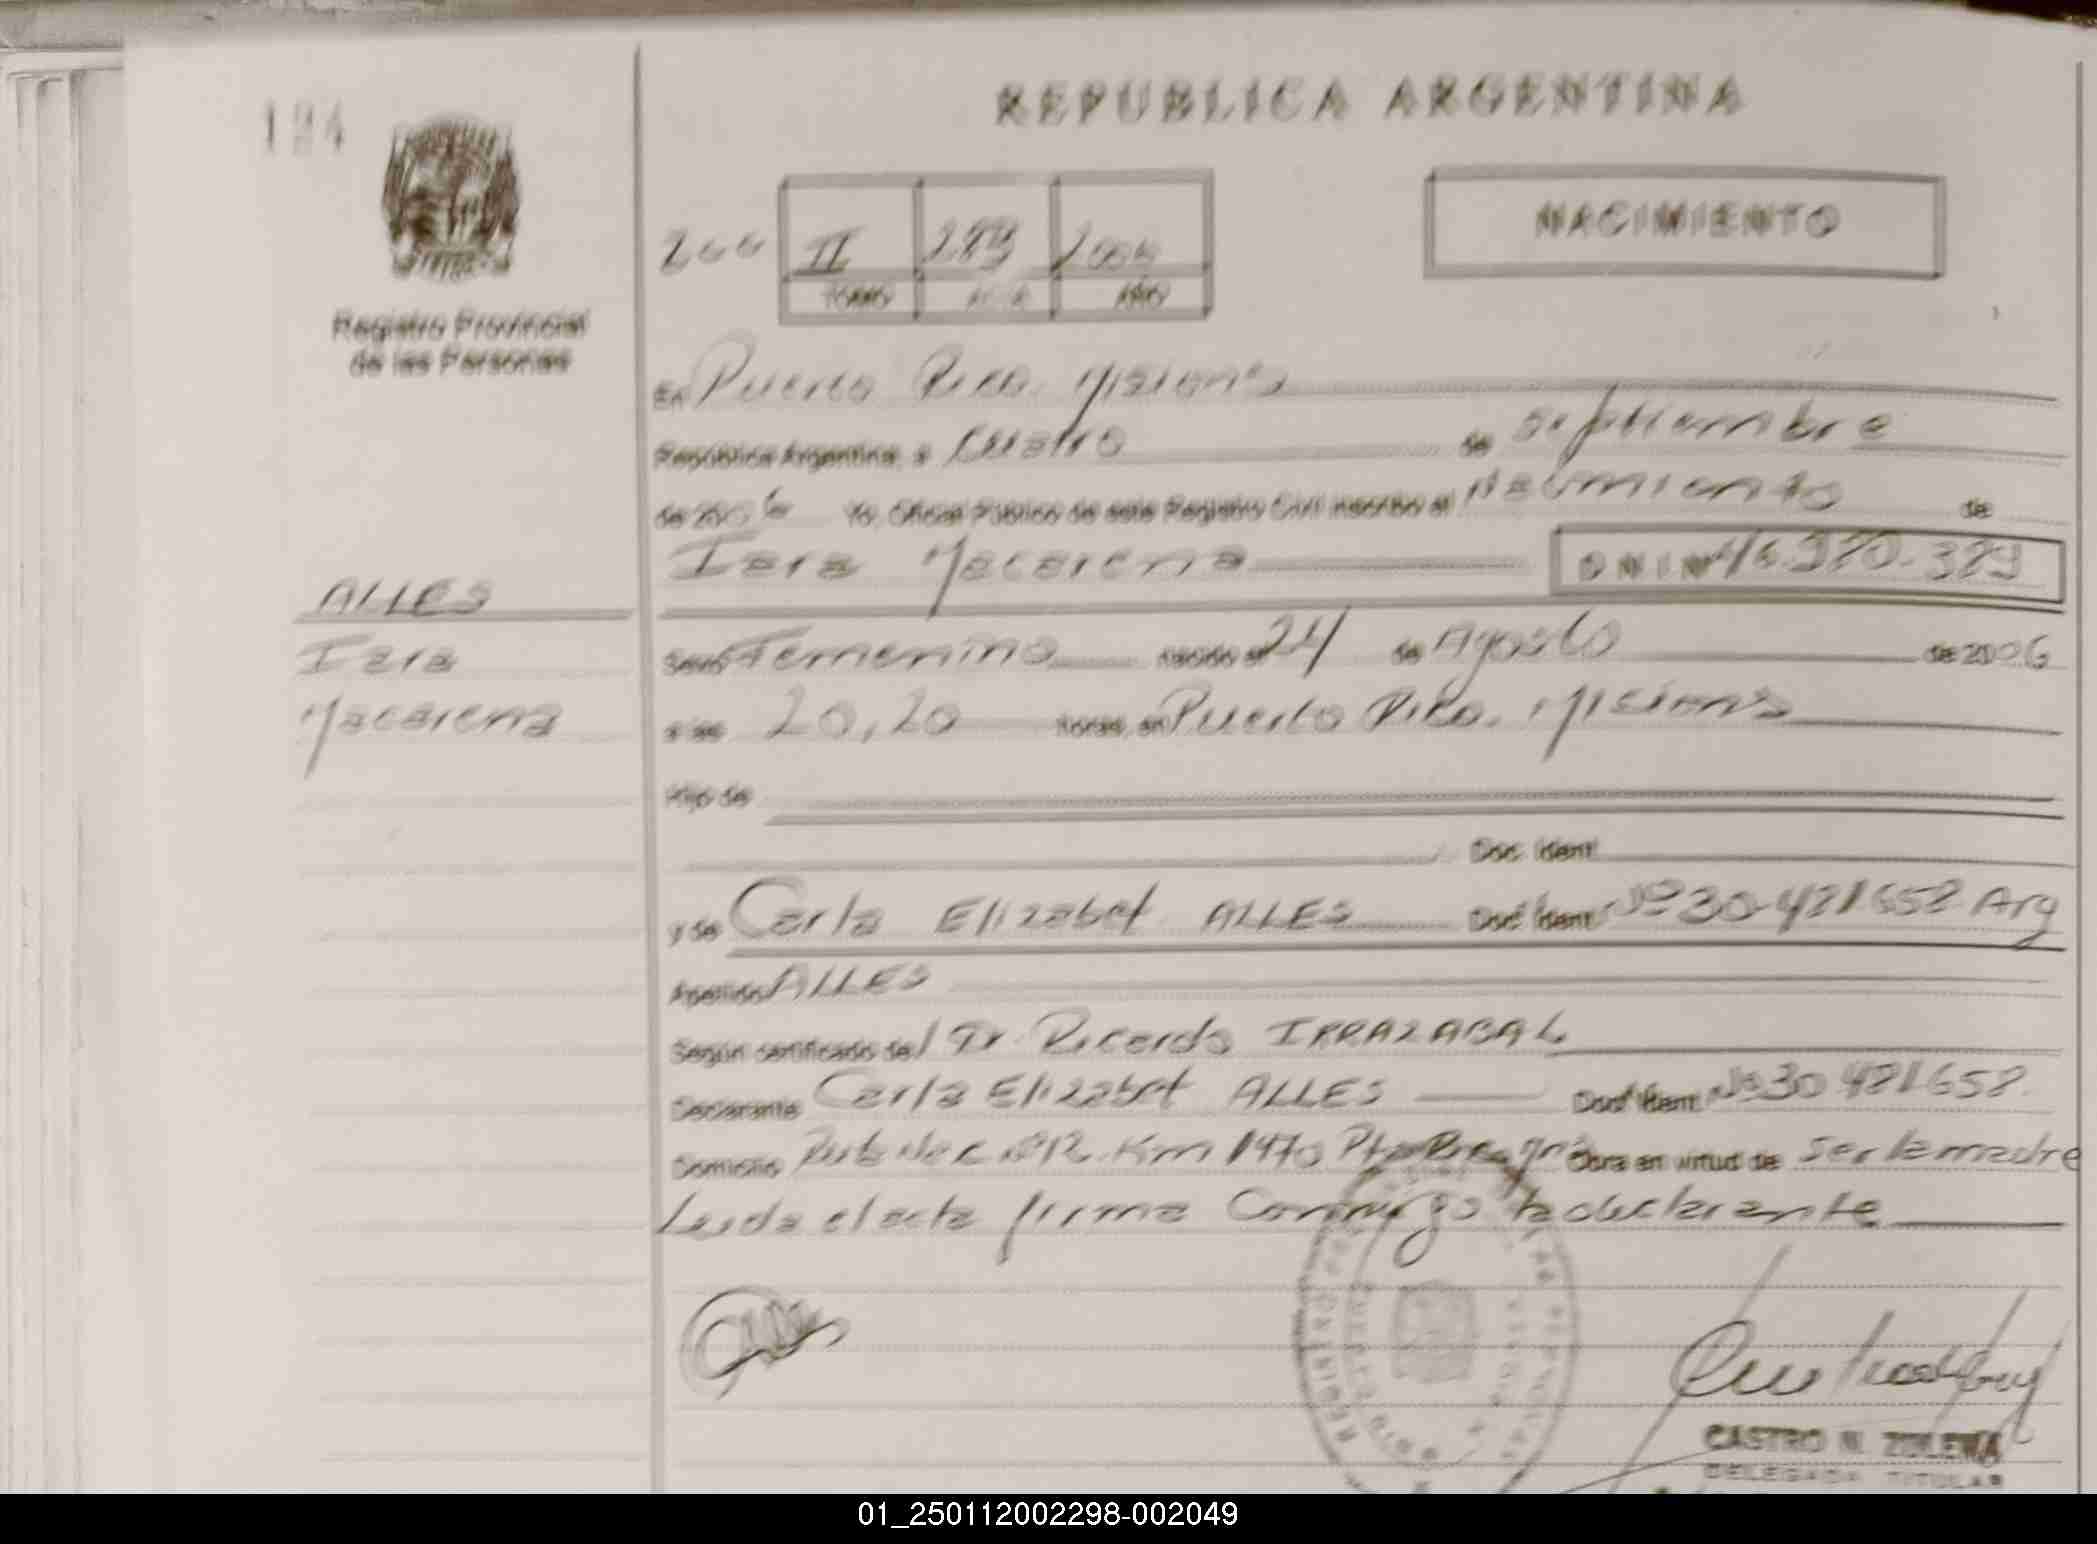 194
REPUBLICA ARGENTINA
NACIMIENTO
II 2006
TOMO ACTA AÑO
Registro Provincial
de las Personas
En Puerto Rico. Misiones
República Argentina, a Cuatro de Septiembre
de 2006 Yo, Oficial Público de este Registro Civil inscribo el Nacimiento de
Iara Macarena D N I Nº 46.980.389
ALLES
Iara
Macarena
Sexo Femenino nacido el 24 de Agosto de 2006
a las 20,20 horas, en Puerto Rico. Misiones
Hijo de
Doc. Ident.
y de Carla Elizabet ALLES Doc. Ident. Nº 30.481658 Arg
Apellido ALLES
Según certificado del Dr Ricardo IRRAZABAL
Declarante Carla Elizabet ALLES Doc. Ident. Nº 30 481658.
Domicilio Ruta Nac Nº12. Km 1470 Pto Rico Mnes Obra en virtud de ser la madre
Leida el acta firma Conmigo la declarante
CASTRO N. ZULEMA
DELEGADA TITULAR
01_250112002298-002049